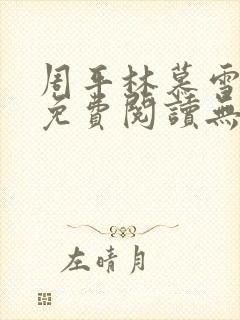 周平林慕雪
免費閱讀無
左晴月